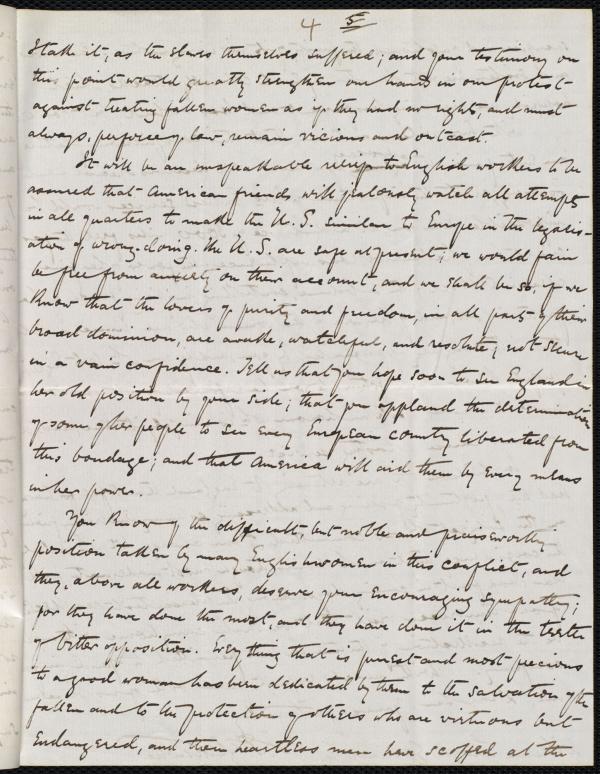 4 5
stake it, as the slaves themselves suffered; and your testimony on
this point would greatly strengthen our hands in our protest
against treating fallen women as if they had no rights, and must
always, perforce of law, remain vicious and outcast.
It will be an unspeakable relief to English workers to be
assured that American friends will jealously watch all attempts
in all quarters to make the U. S. similar to Europe in the legalis-
ation of wrong-doing. The U. S. are safe at present; we would fain
be free from anxiety on their account, and we shall be so, if we
know that the lovers of purity and freedom, in all parts of their
broad dominion, are awake, watchful, and resolute; not secure
in a vain confidence. Tell us that you hope soon to see England in
her old position by your side; that you applaud the determination
of some of her people to see every European country liberated from
this bondage; and that America will aid them by every means
in her power.
You know of the difficult, but noble and praiseworthy
position taken by many Englishwomen in this conflict, and
they, above all workers, deserve your encouraging sympathy;
for they have done the most, and they have done it in the teeth
of bitter opposition. Everything that is purest and most precious
to a good woman has been dedicated by them to the salvation of the
fallen and to the protection of others who are virtuous but
endangered, and then heartless men have scoffed at the